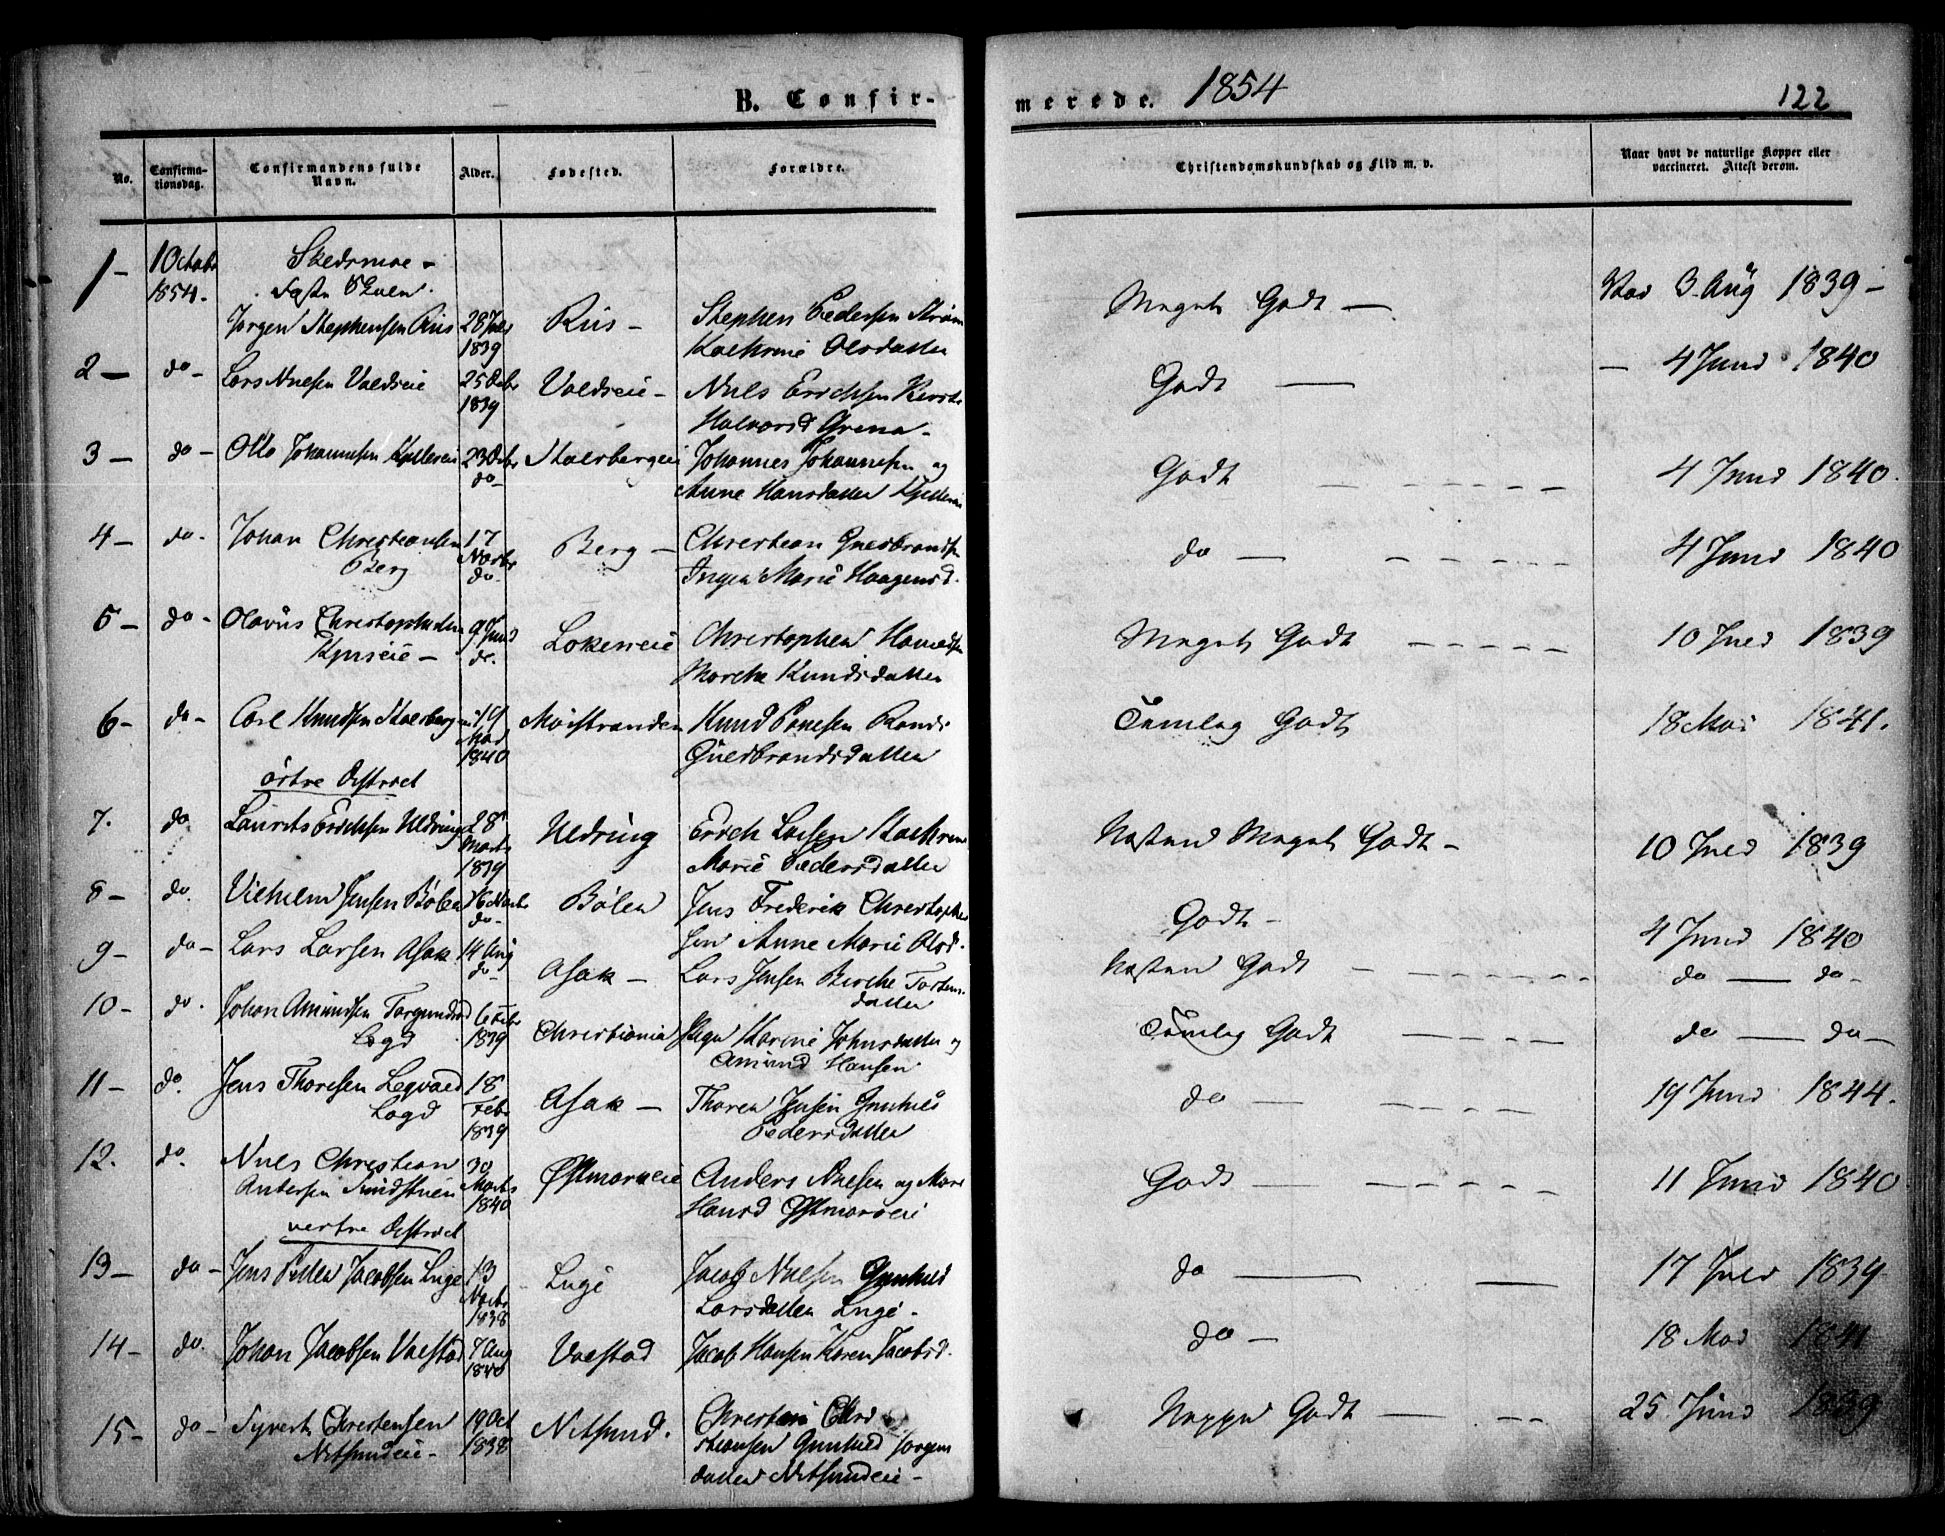 B. Confir-
merede. 1854
122
No.
Confirma-
tionsdag.
Confirmandens fulde
Navn.
Alder.
Fødested.
Forældre.
Christendomskundskab og Flid m. v.
Naar havt de naturlige Kopper eller
vaccineret. Attest derom.
Skedsmoe -
1 - 1 Octobr
1854.
Jørgen Stephensen Riis 28 Juli 1839 Riis - Stephen Pedersen
Kathrine Olsdatter
Meget Godt - Vac 3 Aug 1839 -
2 - do - Lars Nielsen Valdseie 25 Octbr 1839 Valdseie - Niels Erichsen
Halvorsd Grena -
Godt - - 4 Juni 1840
3 - do - Otto Johannesen 23 Octbr do - Johannes Johannesen og
Anne Hansdatter
Godt - 4 Juni 1840.
4 - do - Johan Christiansen
Berg
17 Novbr do - Berg - Christian Guldbrandsen
Ingen Marie Haagensd.
do - 4 Juni 1840
5 - do - Olavus Christophersen 9 Juni do. Christopher
Marthe Knudsdatter
Meget Godt - 10 Juli 1839
6 - do - Carl Knudsen 19 Mai 1840 Knud
Guldbrandsdatter
Temlig Godt 18 Mai 1841.
østre Distrect
7. do Laurits Erichsen Uldring 28 Marts 1839 Uldring Erich Larsen Kathrine
Marie Pedersdatter
Næsten Meget Godt - 10 Juli 1839
8 - do. Vilhelm Jensen Bølen 16 Novbr do - Bølen Jens Frederik Christopher
sen Anne Marie Olsd.
Godt - 4 Juni 1840
9 - do - Lars Larsen Asak 14 Aug do - Asak - Lars Jensen Birthe Torstens
datter
Næsten Godt do - do -
10 - do. Johan Amundsen
Logd
6 Febr 1839 Christiania Karine Johnsdatter og
Amund Hansen
Temlig Godt do - do -
11 - do. Jens Thoresen
Logd
18 Febr 1839 Asak - Thoren Jensen Gunhild
Pedersdatter
do - 19 Juni 1844.
12. do. Niels Christian
Andersen
30 Marts 1840 Østmorkeie Anders Nielsen og Mari
Hansd Østmorkeie
Godt - 11 Juni 1840
vestre Distrect
13 - do - Jens Petter Jacobsen Lugi 13 Novbr 1838 Lugi Jacob Nielsen Gunhild
Larsdatter Lugi -
do - 17 Juli 1839
14 - do. Johan Jacobsen Valstad 7 Aug 1840 Valstad Jacob Hansen Karen Jacobsd.
do - 18 Mai 1841
15 - do - Syvert Christensen
Nitsundeie -
19 Oct 1838 Nitsund. Christian
stiansen Gunhild Jorgens
datter Nitsundeie -
Noppe Godt - 25 Juni 1839